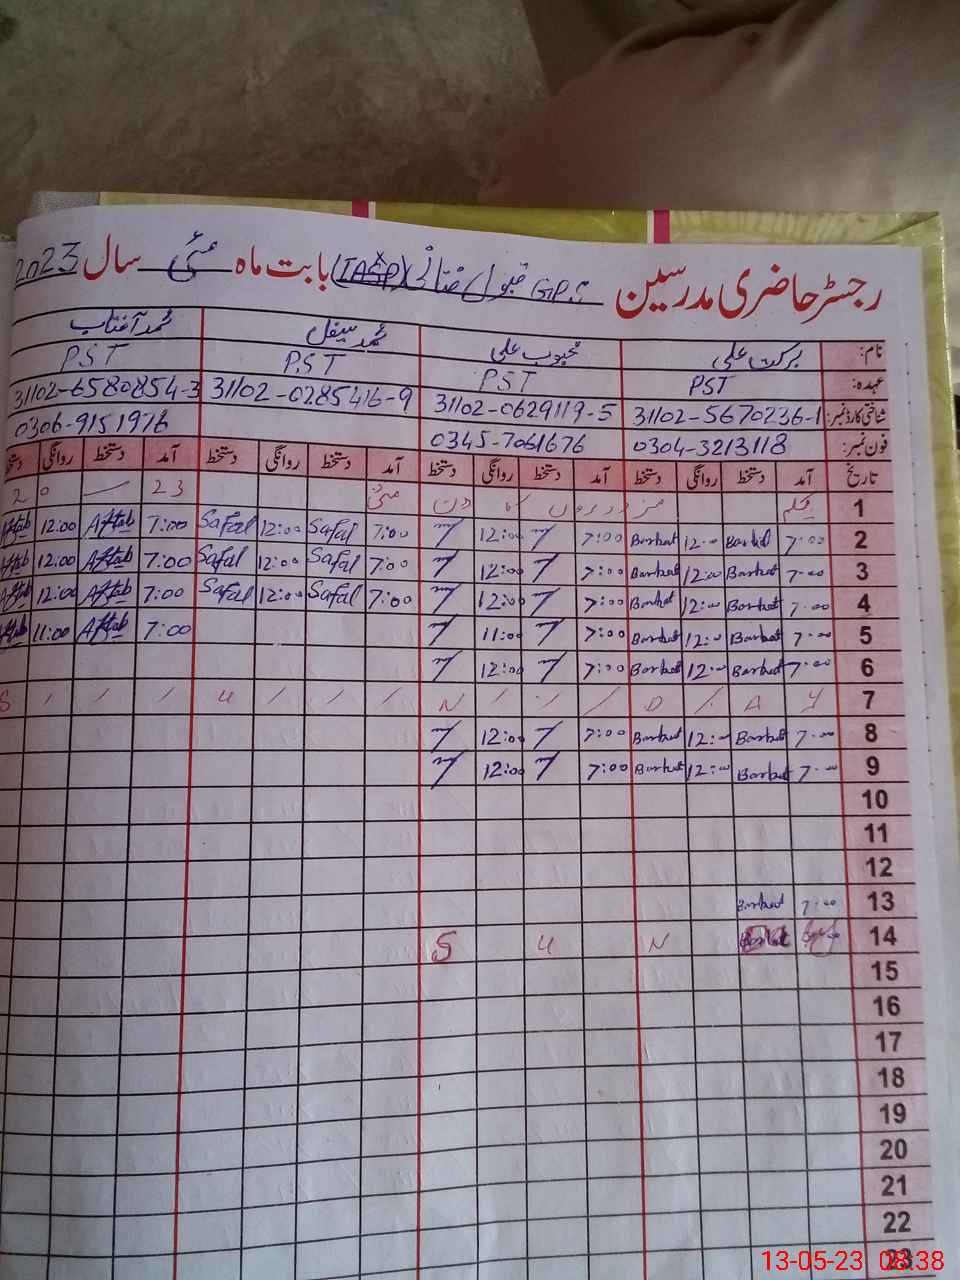 رجسٹر حاضری مدرسین GPS قبول فتانی (IASP) بابت ماہ مئی سال 2023
نام: برکت علی محبوب علی محمد سیفل محمد آفتاب
عہدہ: PST PST PST PST
شناختی کارڈ نمبر: 31102-5670236-1 31102-0629119-5 31102-0285416-9 31102-6580854-3
فون نمبر: 0304-3213118 0345-7061676 0306-9151976
تاریخ آمد دستخط روانگی دستخط آمد دستخط روانگی دستخط آمد دستخط روانگی دستخط آمد دستخط روانگی دستخط
1 یکم مزدوروں کا دن مئی 23 20
2 7:00 Barkat 12:00 Barkat 7:00 12:00 7:00 Safal 12:00 Safal 7:00 Aftab 12:00 Aftab
3 7:00 Barkat 12:00 Barkat 7:00 12:00 7:00 Safal 12:00 Safal 7:00 Aftab 12:00 Aftab
4 7:00 Barkat 12:00 Barkat 7:00 12:00 7:00 Safal 12:00 Safal 7:00 Aftab 12:00 Aftab
5 7:00 Barkat 12:00 Barkat 7:00 11:00 7:00 Aftab 11:00 Aftab
6 7:00 Barkat 12:00 Barkat 7:00 12:00
7 S / / / U / / / N / / / D / A Y
8 7:00 Barkat 12:00 Barkat 7:00 12:00
9 7:00 Barkat 12:00 Barkat 7:00 12:00
10
11
12
13 7:00 Barkat
14 S U N
15
16
17
18
19
20
21
22
23
13-05-23 08:38